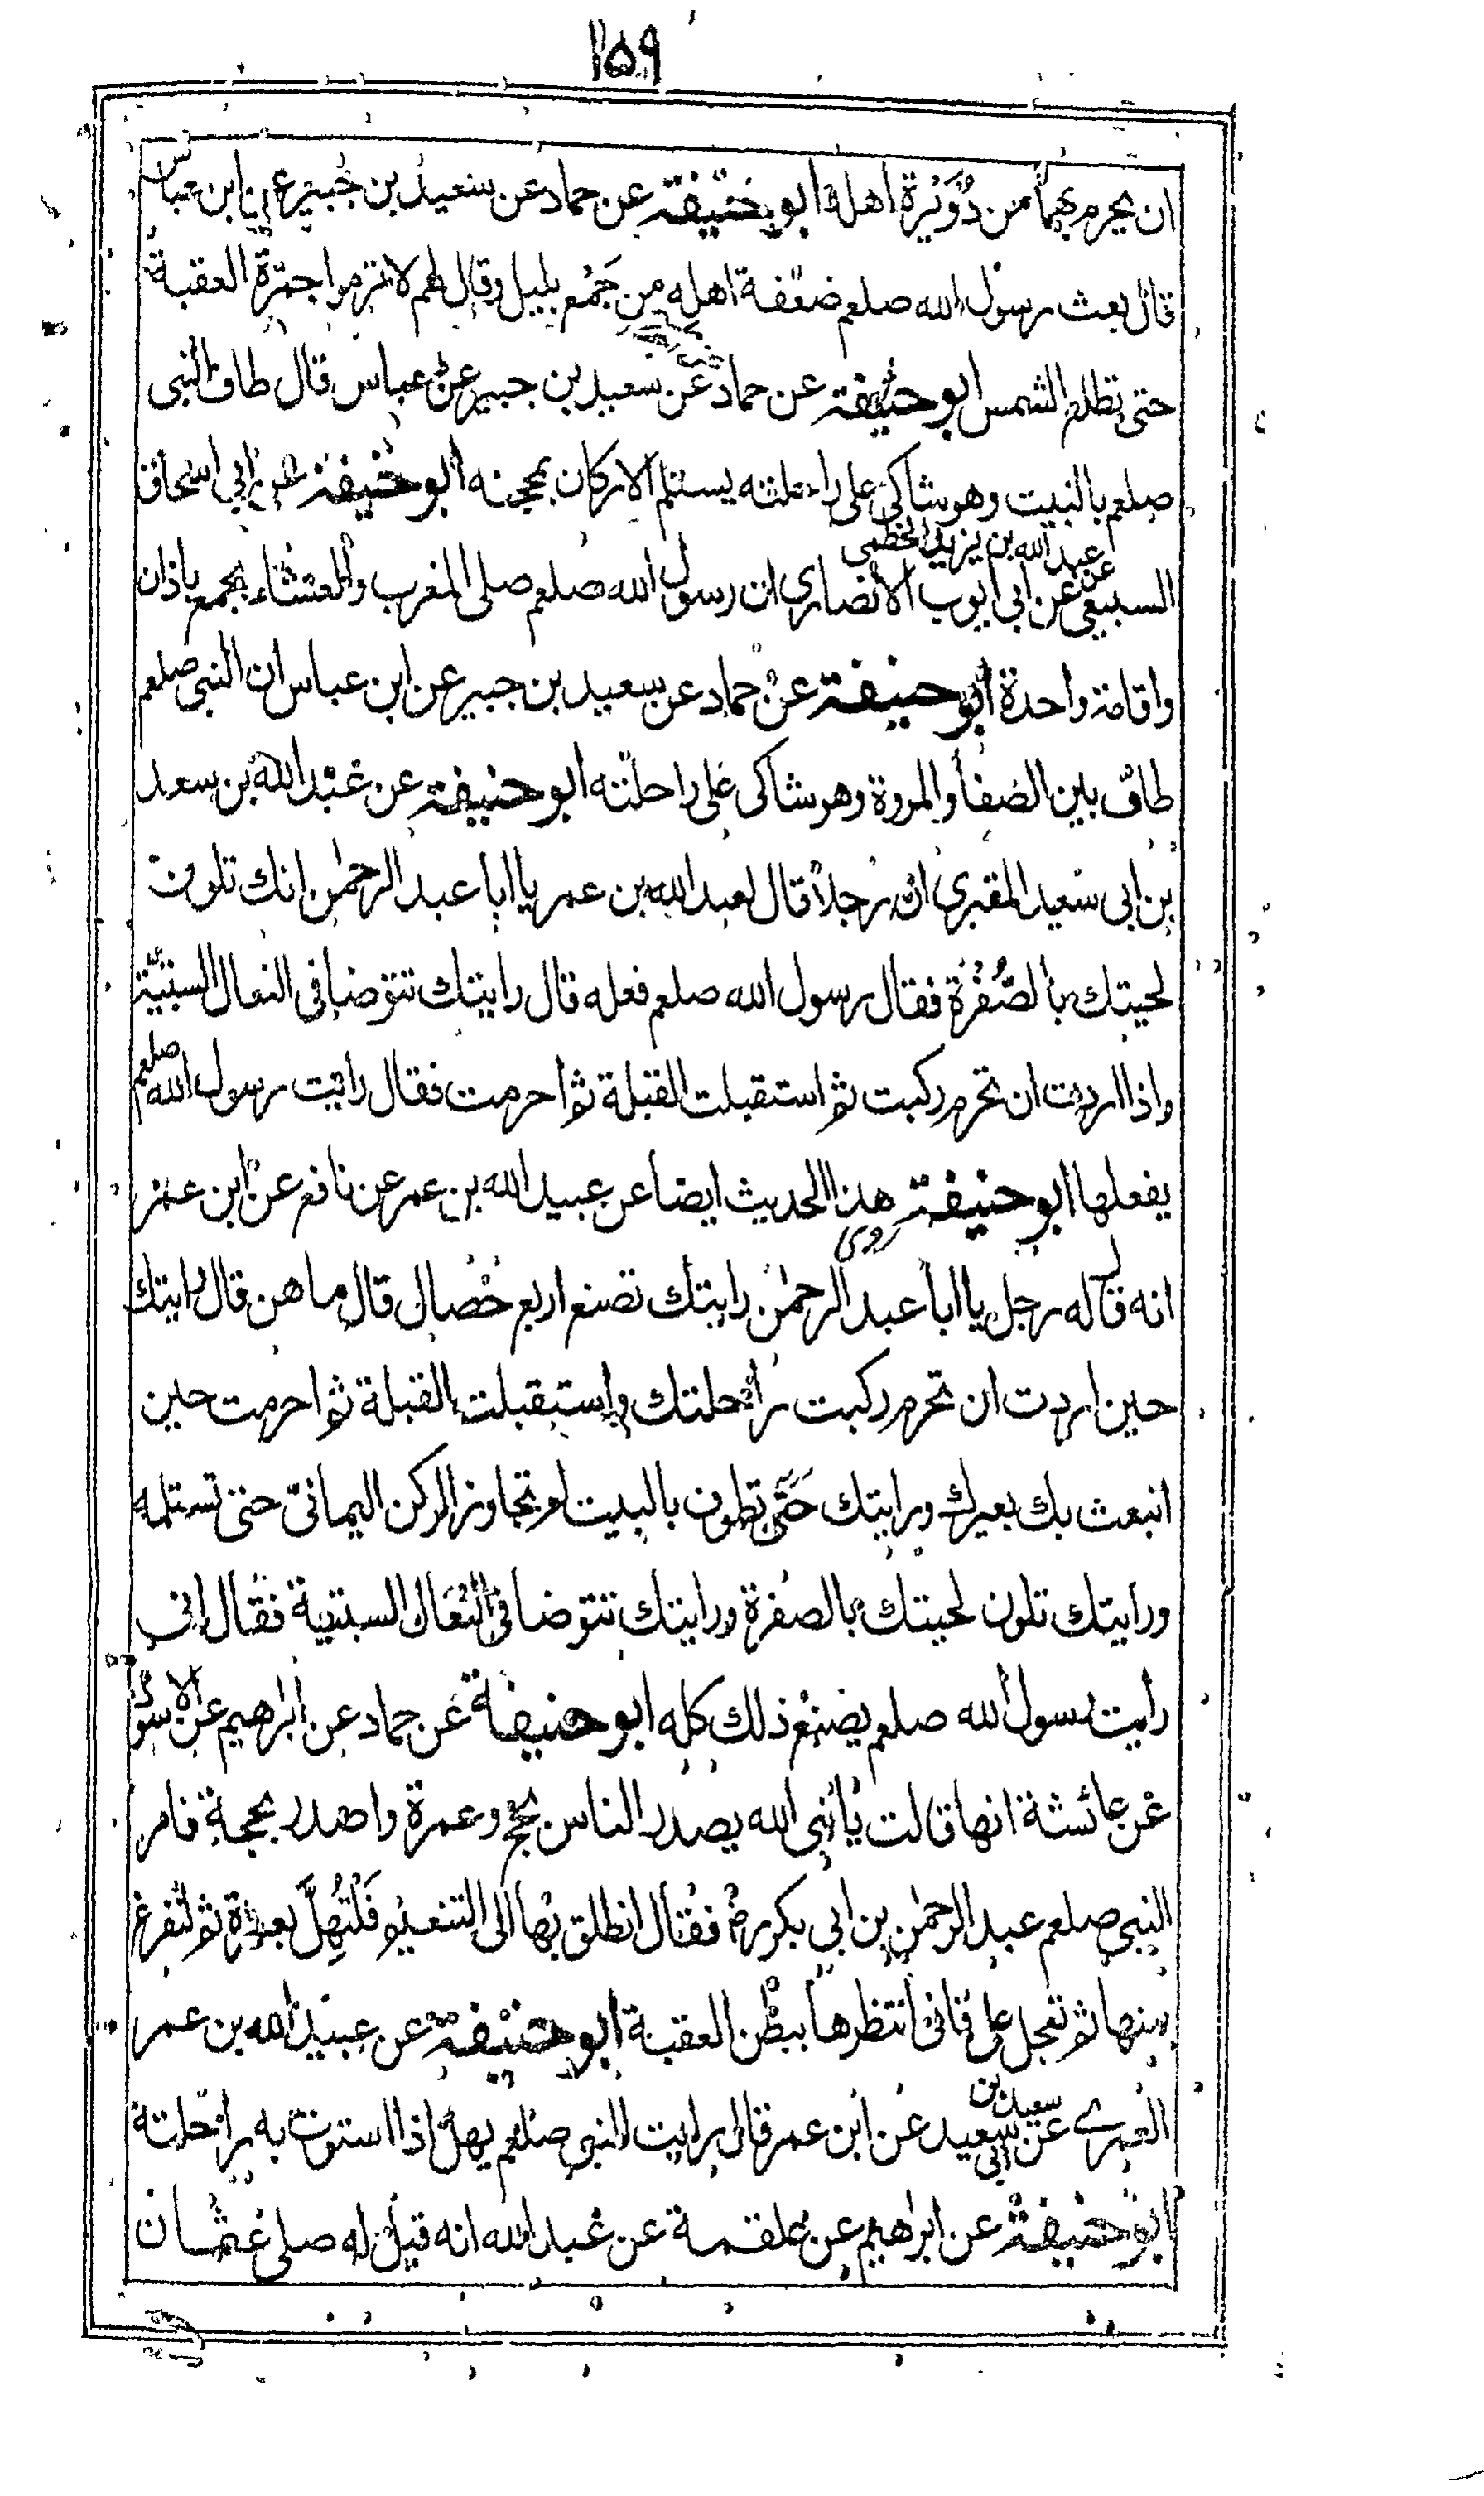 ١٥٩
ان يحرم بهما من دُوَيْرة اهله ابو حنيفة عن حماد عن سعيد بن جبير عن ابن عباس
قال بعث رسول الله صلعم ضعفة اهله من جَمْع بليل وقال لهم لا ترموا جمرة العقبة
حتى تطلع الشمس ابو حنيفة عن حماد عن سعيد بن جبير عن عباس قال طاف النبى
صلعم بالبيت وهو شاكى على راحلته يستلم الاركان بمحجنه ابو حنيفة عن ابي اسحاق
عن عبد الله بن يزيد الخطمى
السبيعى عن ابى ايوب الانصارى ان رسول الله صلعم صلى المغرب والعشاء بجمع باذان
واقامة واحدة ابو حنيفة عن حماد عن سعيد بن جبير عن ابن عباس ان النبى صلعم
طاف بين الصفا والمروة وهو شاكى على راحلته ابو حنيفة عن عبد الله بن سعد
بن ابى سعيد المقبرى ان رجلا قال لعبد الله بن عمر يا ابا عبد الرحمٰن انك تلون
لحيتك بالصُّفْرة فقال رسول الله صلعم فعله قال رايتك تتوضا فى النعال السبتية
واذا اردت ان تحرم ركبت ثم استقبلت القبلة ثم احرمت فقال رايت رسول الله صلعم
يفعلها ابو حنيفة هذا الحديث ايضا عن عبيد الله بن عمر عن نافع عن ابن عمر
روى
انه قال له رجل يا ابا عبد الرحمٰن رايتك تصنع اربع خصال قال ما هن قال رايتك
حين اردت ان تحرم ركبت راحلتك واستقبلت القبلة ثم احرمت حين
انبعث بك بعيرك ورايتك حَتَّى تطوف بالبيت لم تجاوز الركن اليمانىّ حتى تستلمه
ورايتك تلون لحيتك بالصفرة ورايتك تتوضا فى النعال السبتية فقال انى
رايت رسول الله صلعم يصنع ذلك كله ابو حنيفة عن حماد عن ابرهيم عن الاسود
عن عائشة انها قالت يا نبى الله يصدر الناس بحج وعمرة واصدر بحجة فامر
النبي صلعم عبد الرحمٰن بن ابي بكر رض فقال انطلق بها الى التنعيم فَلْتُهِلَّ بعمرة ثم لتفرغ
منها ثم تعجل على فانى انتظرها ببطن العقبة ابو حنيفة عن عبيد الله بن عمر
سعيد بن
العمرى عن ابى سعيد عن ابن عمر قال رايت النبى صلعم يهل اذا استوت به راحلته
ابو حنيفة عن ابرهيم عن علقمة عن عبد الله انه قيل له صلى عثمان